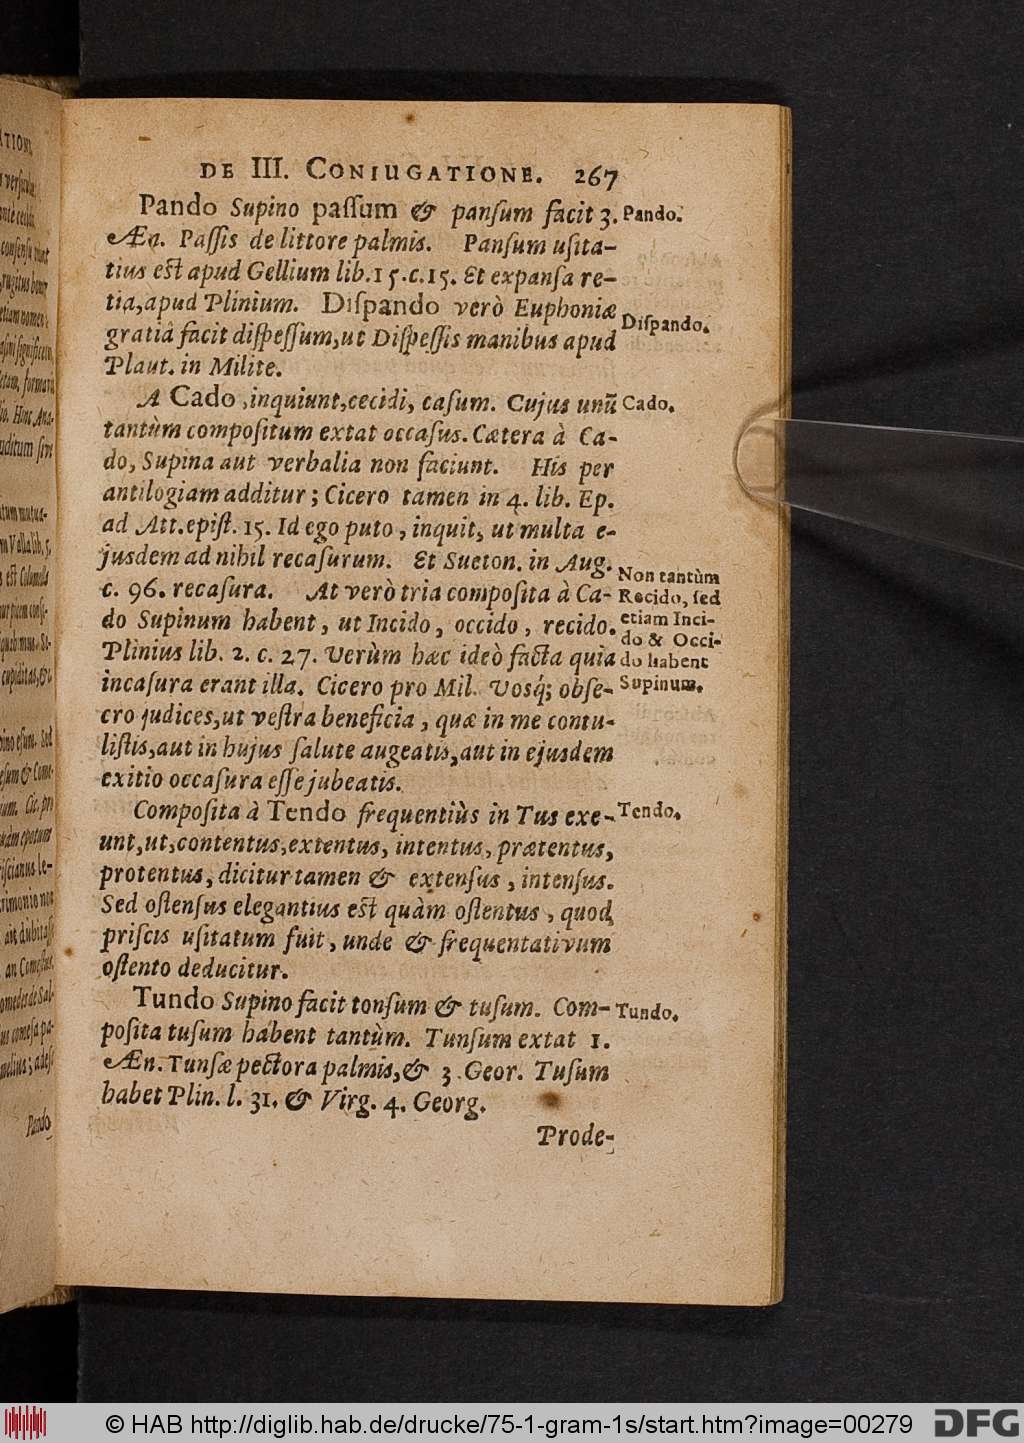 DE III. CONIUGATIONE. 267
Pando Supino paſſum & panſum facit 3.
Æn. Paſſis de littore palmis. Panſum uſita-
tius eſt apud Gellium lib.15.c.15. Et expanſa re-
tia,apud Plinium. Diſpando verò Euphoniæ
gratiâ facit diſpeſſum,ut Diſpeſſis manibus apud
Plaut. in Milite.
A Cado ,inquiunt,cecidi, caſum. Cujus unũ
tantùm compoſitum extat occaſus. Cætera à Ca-
do, Supina aut verbalia non faciunt. His per
antilogiam additur; Cicero tamen in 4. lib. Ep.
ad Att.epiſt. 15. Id ego puto, inquit, ut multa e-
jusdem ad nihil recaſurum. Et Sueton. in Aug.
c. 96. recaſura. At verò tria compoſita à Ca-
do Supinum habent, ut Incido, occido, recido.
Plinius lib. 2. c. 27. Verùm hæc ideò facta quia
incaſura erant illa. Cicero pro Mil. Vosq́; obſe-
cro judices,ut veſtra beneficia, quæ in me contu-
liſtis,aut in hujus ſalute augeatis,aut in ejusdem
exitio occaſura eſſe jubeatis.
Compoſita à Tendo frequentiùs in Tus exe-
unt,ut,contentus,extentus, intentus, prætentus,
protentus, dicitur tamen & extenſus, intenſus.
Sed oſtenſus elegantius eſt quàm oſtentus, quod
priſcis uſitatum fuit, unde & frequentativum
oſtento deducitur.
Tundo Supino facit tonſum & tuſum. Com-
poſita tuſum habent tantùm. Tunſum extat 1.
Æn. Tunſæ pectora palmis,& 3 Geor. Tuſum
habet Plin. l. 31. & Virg. 4. Georg.
Prode-
Pando.
Diſpando.
Cado.
Non tantùm
Recido, ſed
etiam Inci-
do & Occi-
do habent
Supinum.
Tendo.
Tundo.
Pando
© HAB http://diglib.hab.de/drucke/75-1-gram-1s/start.htm?image=00279
DFG